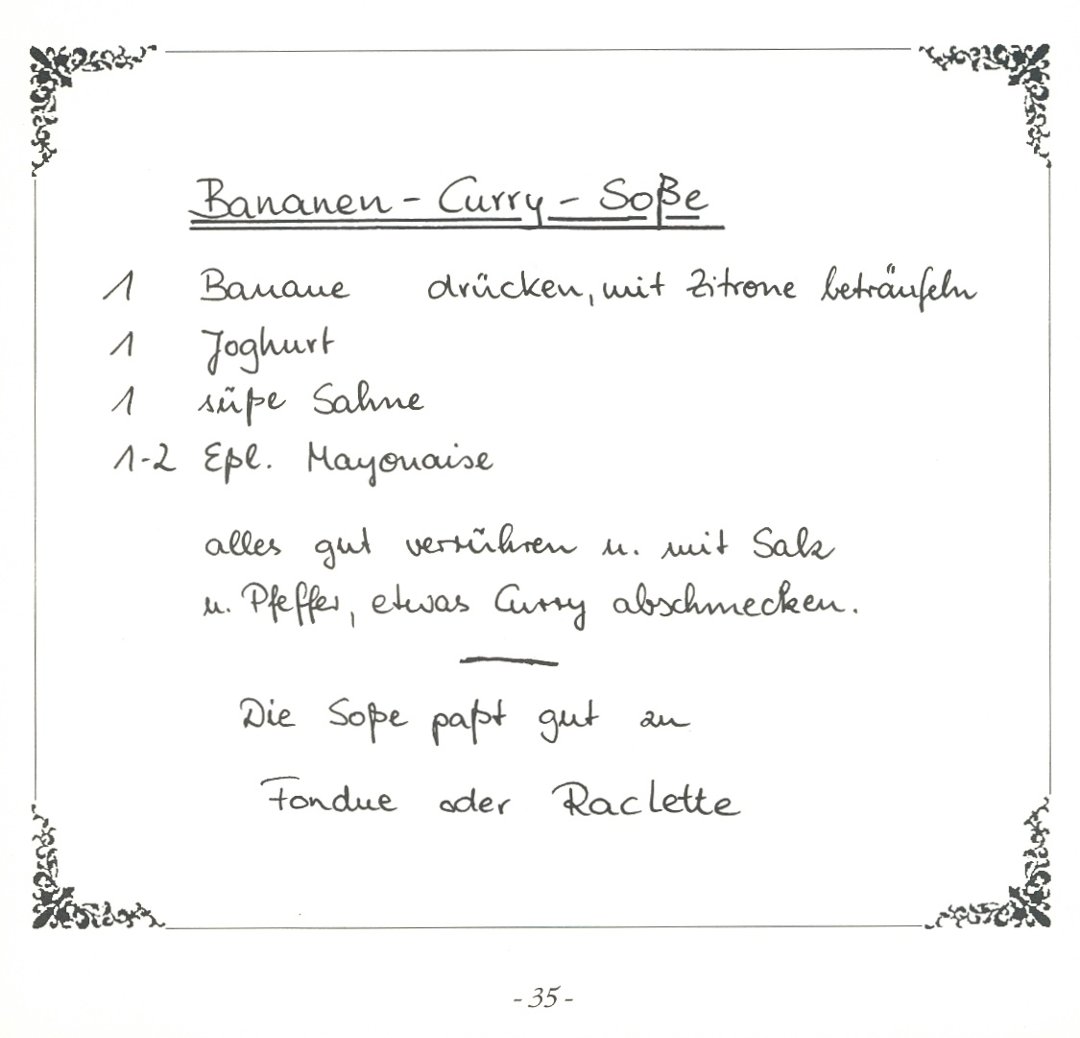 Bananen - Curry - Soße
1 Banane drücken, mit Zitrone beträufeln
1 Joghurt
1 süße Sahne
1-2 Eßl. Mayonaise
alles gut verrühren u. mit Salz
u. Pfeffer, etwas Curry abschmecken.
Die Soße paßt gut zu
Fondue oder Raclette
- 35 -